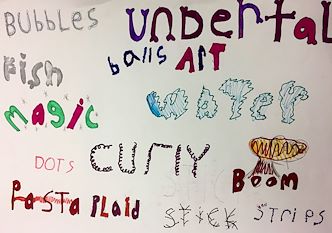 BUBBLES
UNDERTAL
Fish
balls ART
Magic
WATER
DOTS
CURLY
BOOM
PASTA PLAID
STICK
STRIPS